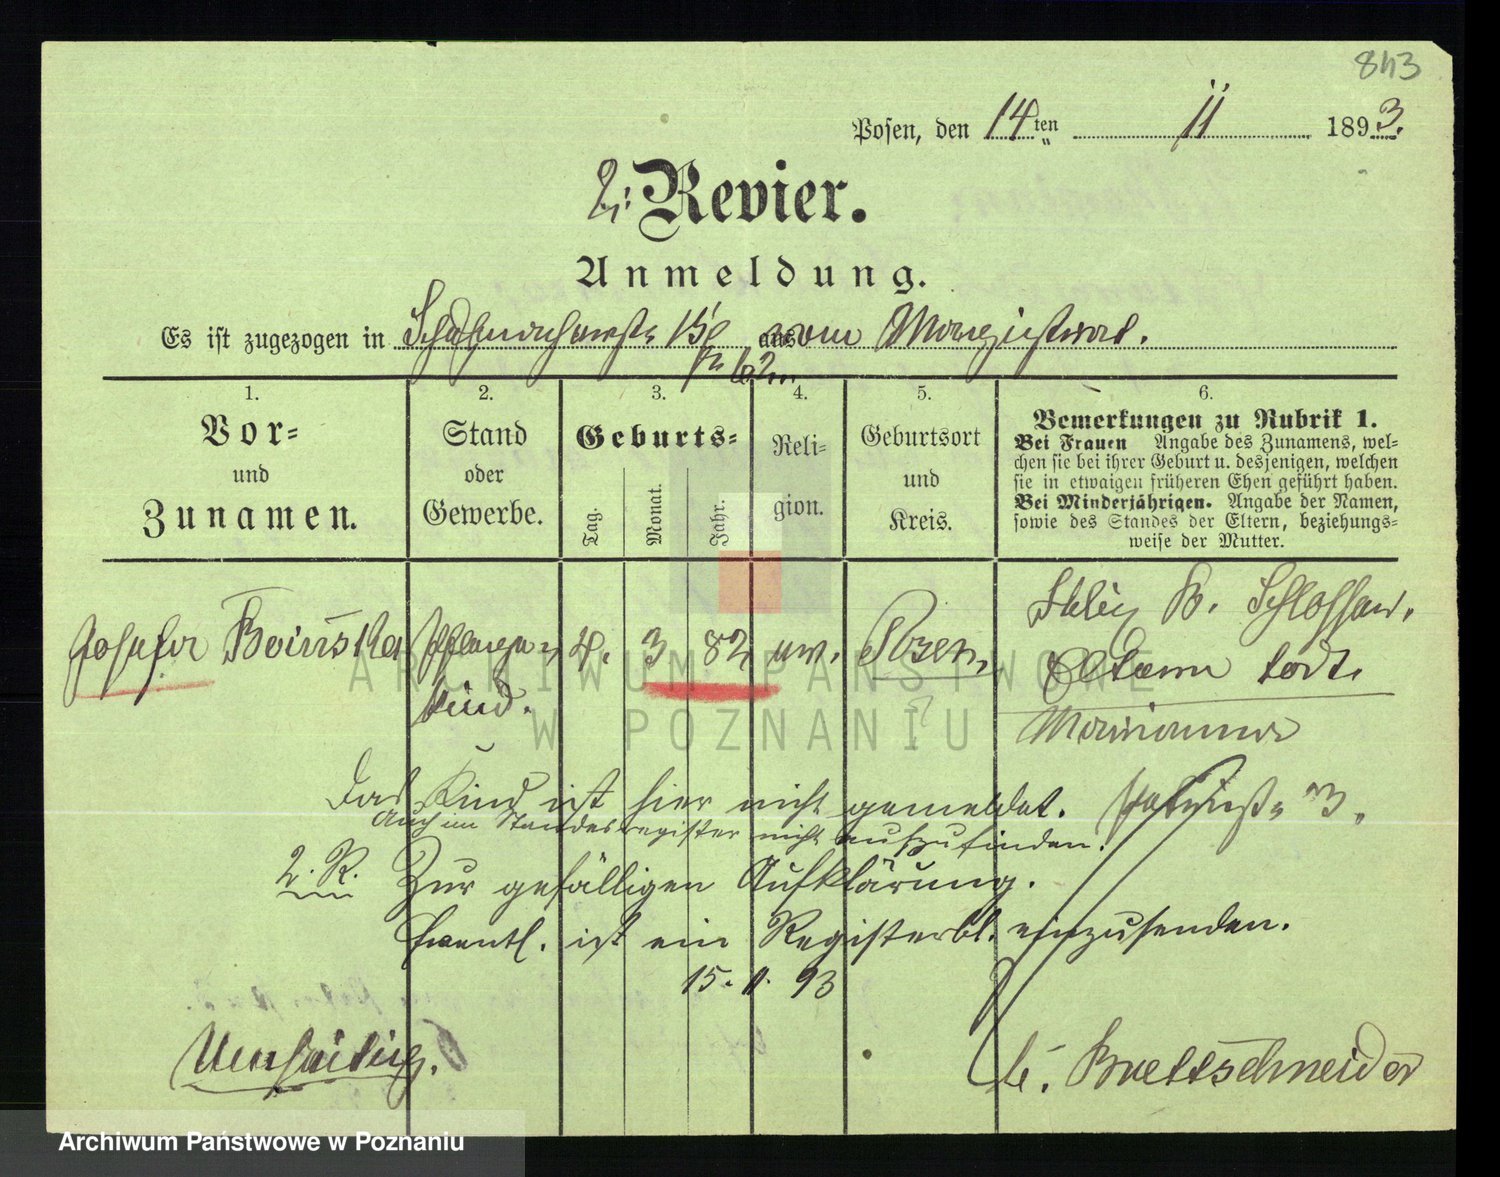 843
Posen, den 14ten 11 1893.
2. Revier.
Anmeldung.
Es ist zugezogen in Schuhmacherstr. 15 aus vom Magistrat.
1. 2. 3. 4. 5. 6.
Vor- und Zunamen.
Stand oder Gewerbe.
Geburts-
Tag. Monat. Jahr.
Religion.
Geburtsort und Kreis.
Bemerkungen zu Rubrik 1.
Bei Frauen Angabe des Zunamens, wel-
chen sie bei ihrer Geburt u. desjenigen, welchen
sie in etwaigen früheren Ehen geführt haben.
Bei Minderjährigen. Angabe der Namen,
sowie des Standes der Eltern, beziehungs-
weise der Mutter.
Josefa 4. 3 82 Posen, B. Schlosser.
Kind. Eltern todt.
Marianna
Das Kind ist hier nicht gemeldet.
Auch im Standesregister nicht aufzufinden.
2. R. Zur gefälligen Aufklärung.
Eventl. ist ein Registerbl. einzusenden.
15. 11. 93
Umseitig.
Brettschneider
ARCHIWUM PAŃSTWOWE
W POZNANIU
Archiwum Państwowe w Poznaniu